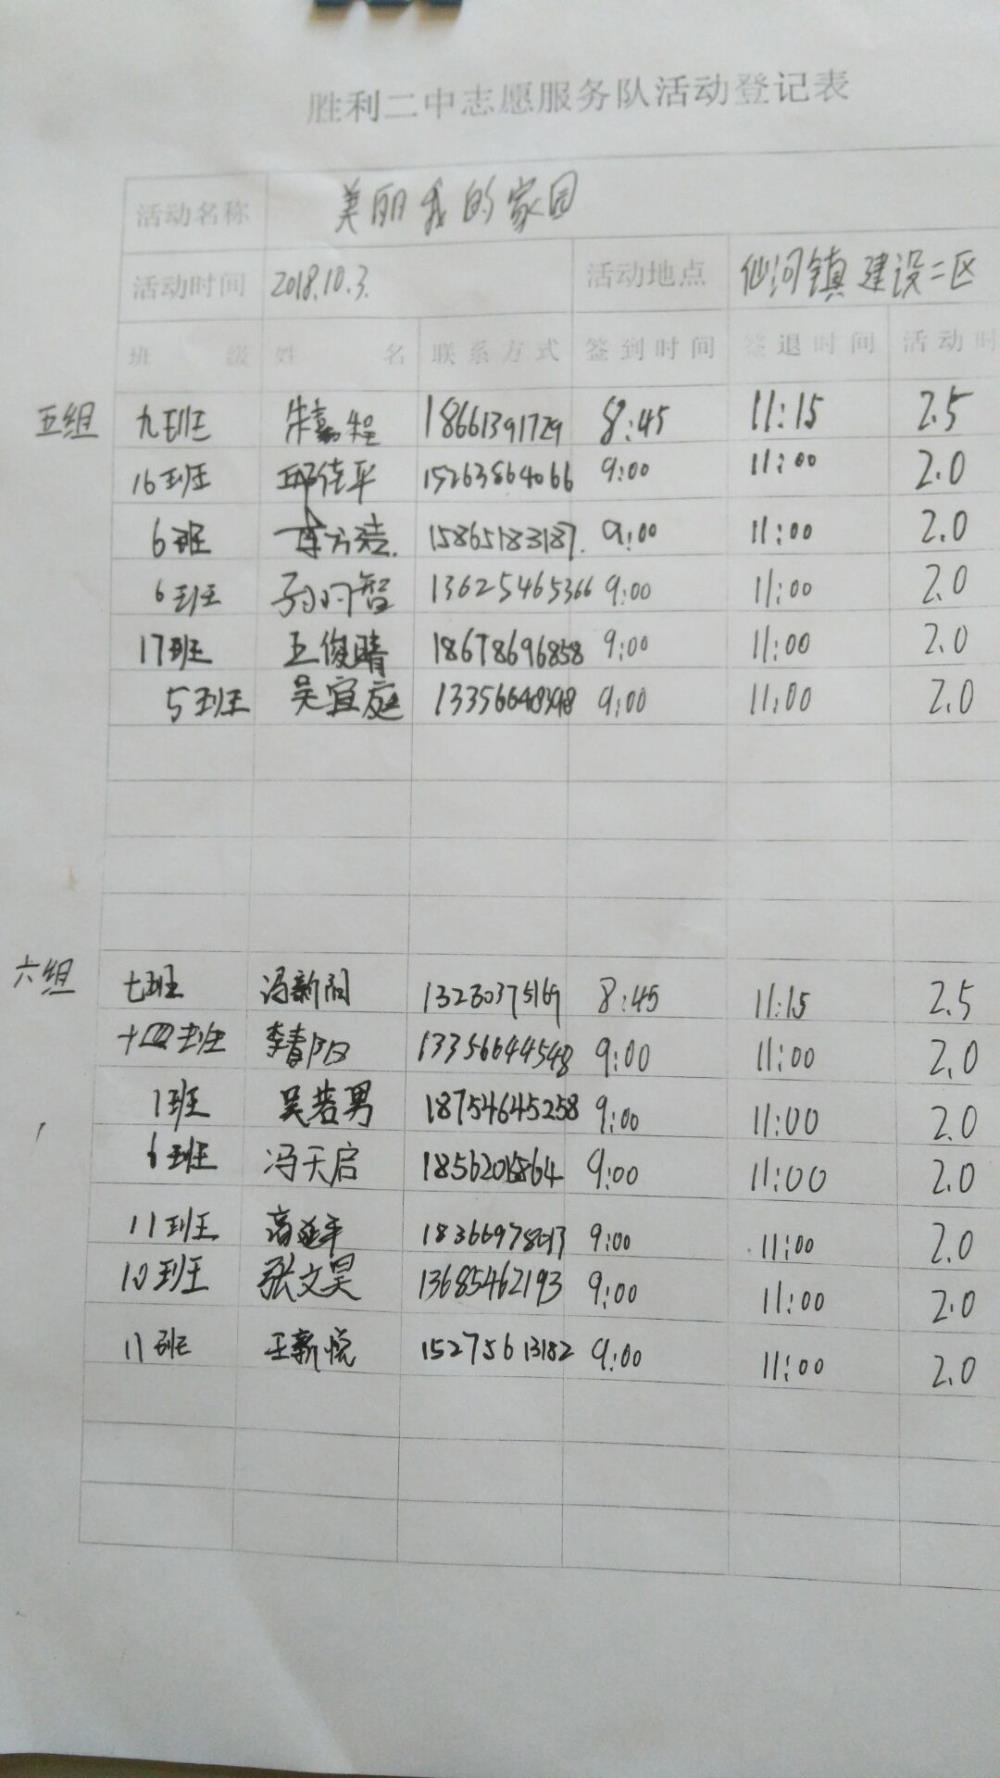 胜利二中志愿服务队活动登记表
活动名称 美丽我的家园
活动时间 2018.10.3. 活动地点 仙河镇建设二区
班级 姓名 联系方式 签到时间 签退时间 活动时
五组 九班 朱嘉程 18661391729 8:45 11:15 2.5
16班 邱佳平 15263864066 9:00 11:00 2.0
6班 15865183187. 9:00 11:00 2.0
6班 13625465366 9:00 11:00 2.0
17班 王俊晴 18678696858 9:00 11:00 2.0
5班 吴宜庭 9:00 11:00 2.0
六组 七班 冯新阳 8:45 11:15 2.5
十四班 李春阳 13356644548 9:00 11:00 2.0
1班 吴若男 18754645258 9:00 11:00 2.0
6班 冯天启 9:00 11:00 2.0
11班 高延平 9:00 11:00 2.0
10班 张文昊 13685462193 9:00 11:00 2.0
11班 王新悦 15275613182 9:00 11:00 2.0